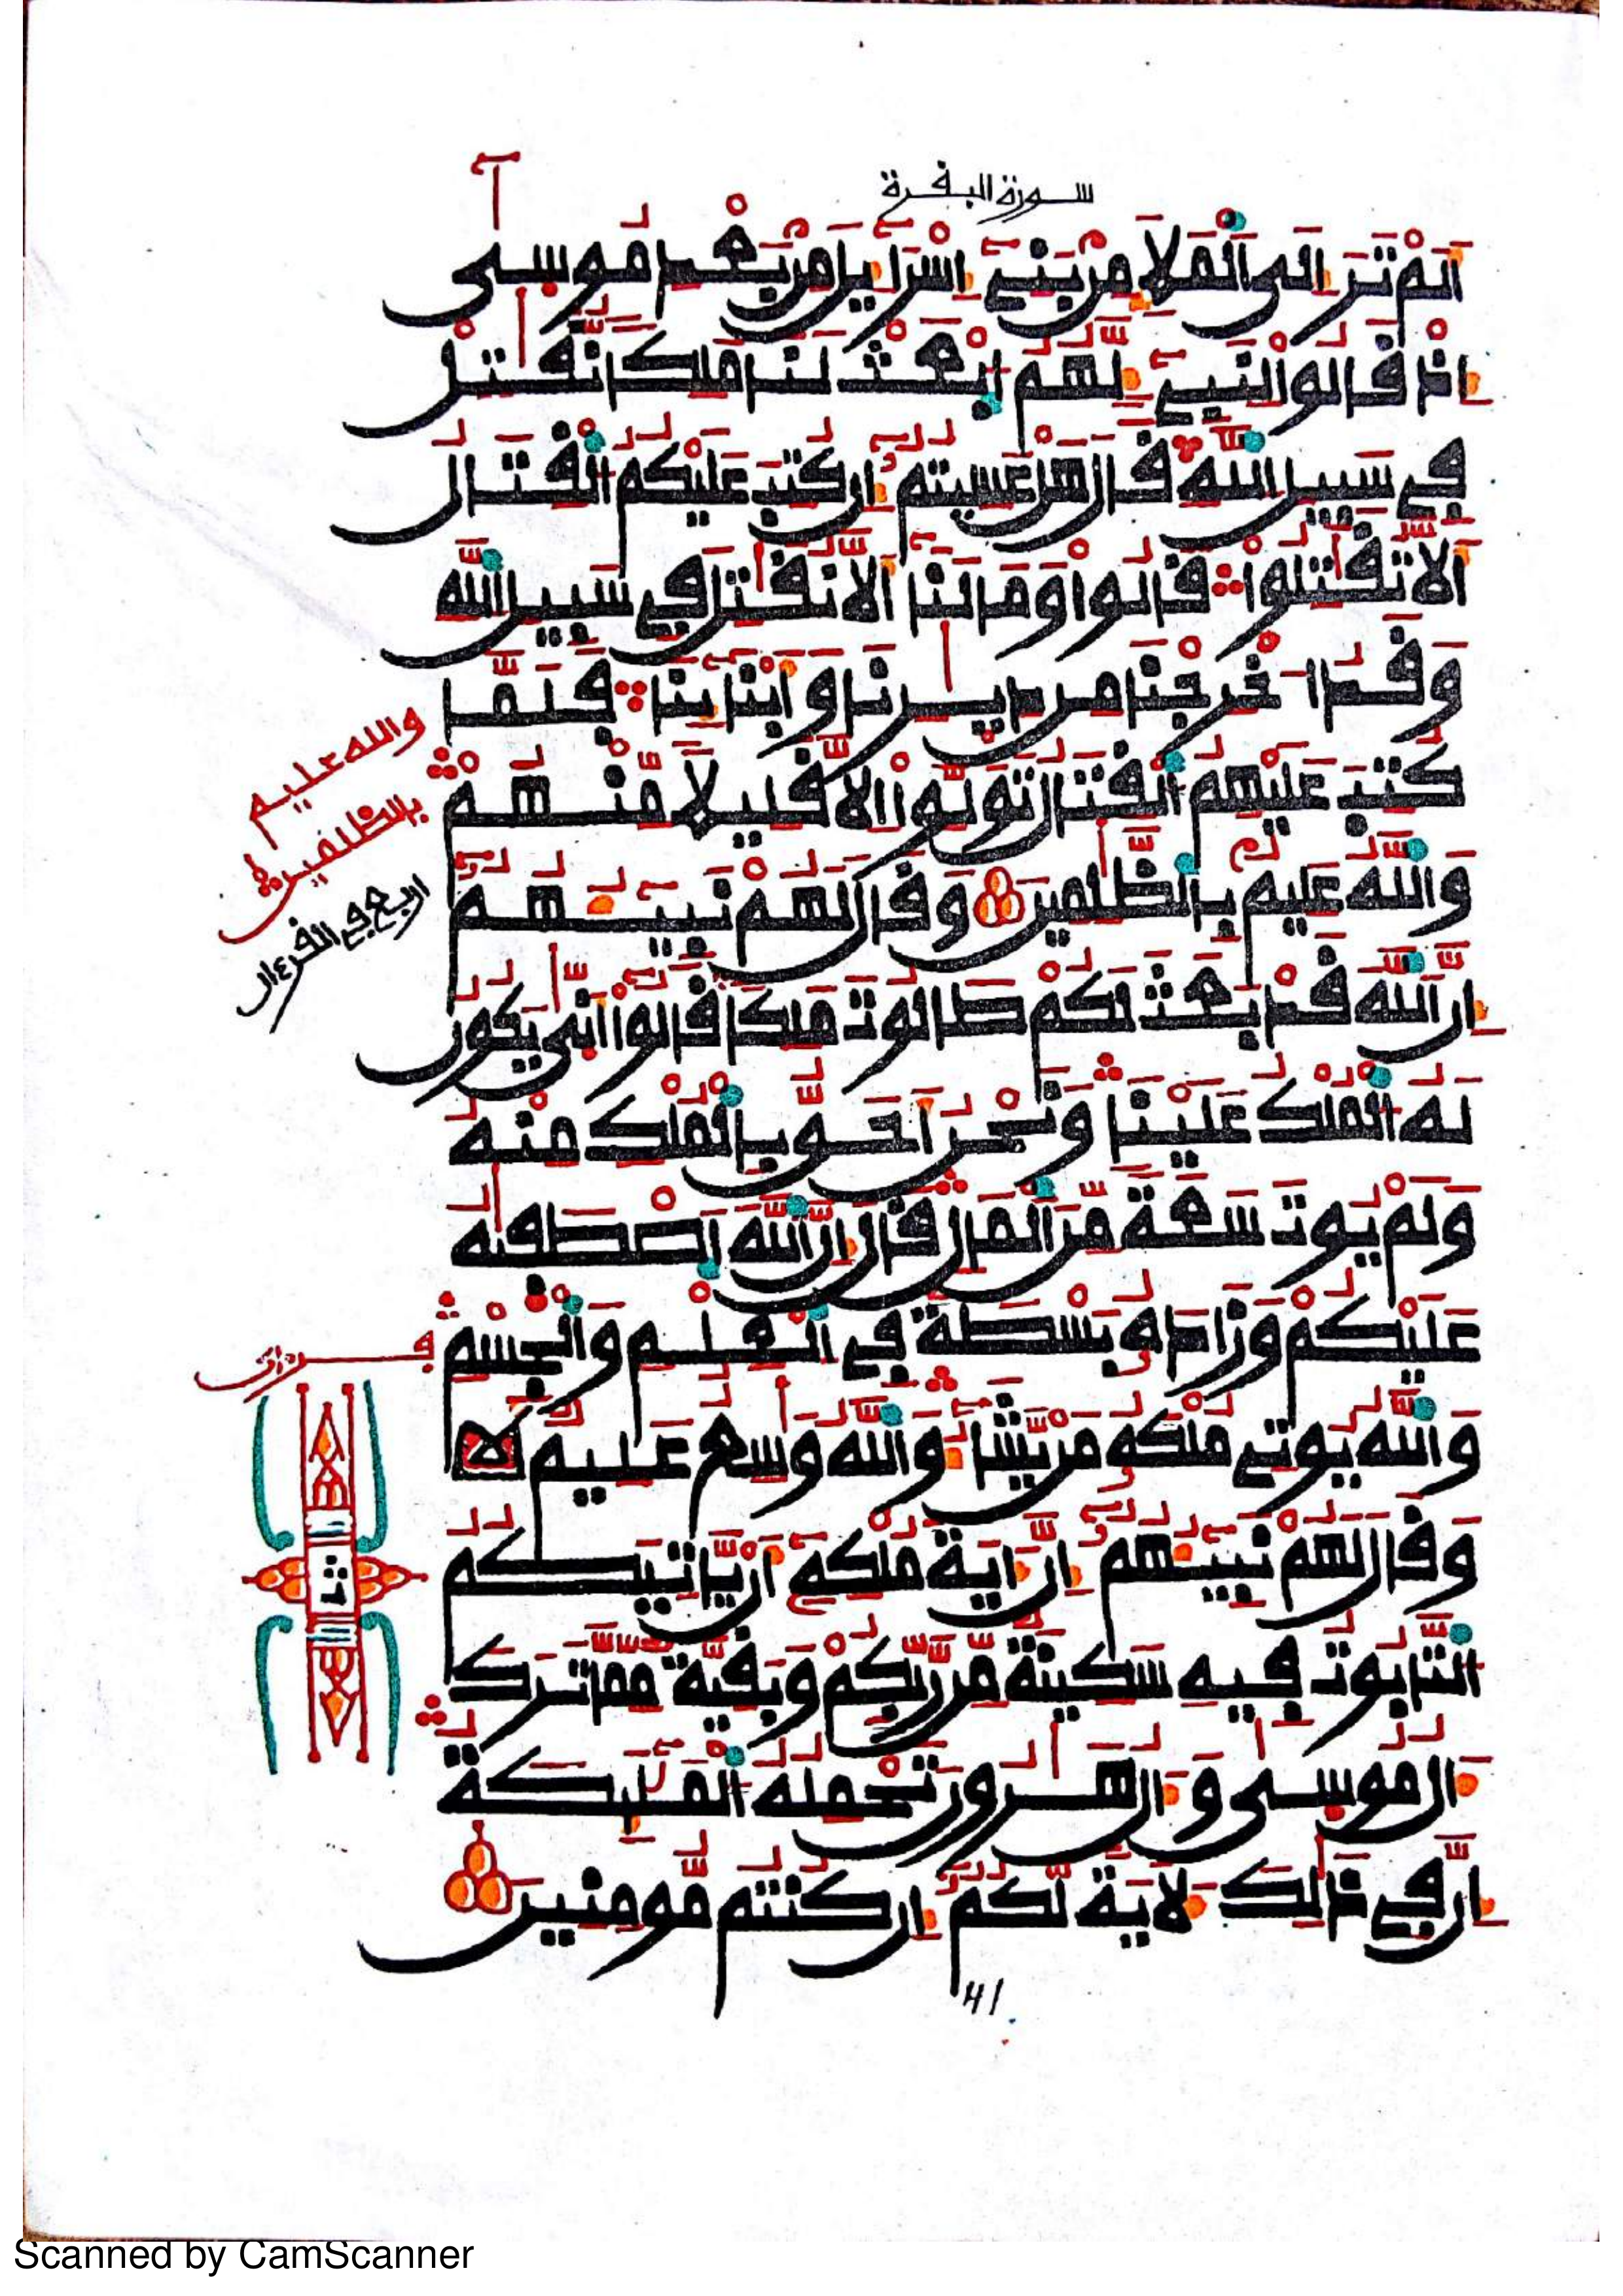 سورة البقرة
الم تر الى الملإ من بنى إسراءيل من بعد موسى
إذ قالوا لنبىء لهم ابعث لنا ملكا نقتل
فى سبيل الله قال هل عسيتم إن كتب عليكم القتال
ألا تقتلوا قالوا وما لنا ألا نقتل فى سبيل الله
وقد اخرجنا من ديرنا وابناينا فلما
كتب عليهم القتال تولوا الا قليلا منهم
والله عليم بالظلمين وقال لهم نبيئهم
إن الله قد بعث لكم طالوت ملكا قالوا أنى يكون
له الملك علينا ونحن أحق بالملك منه
ولم يوت سعة من المال قال إن الله اصطفيه
عليكم وزاده بسطة فى العلم والجسم
والله يوتى ملكه من يشاء والله وسع عليم
وقال لهم نبيئهم إن ءاية ملكه أن ياتيكم
التابوت فيه سكينة من ربكم وبقية مما ترك
ءال موسى وءال هرون تحمله المليكة
إن فى ذلك لأية لكم إن كنتم مومنين
والله عليم
بالظلمين
اربع فى القرءان
41
Scanned by CamScanner